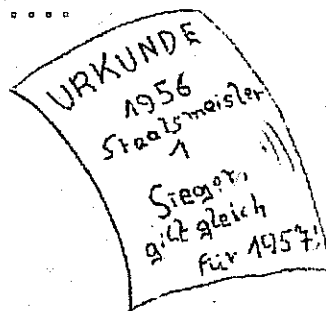 URKUNDE
1956
Staatsmeister
1
Sieger,
gilt gleich
für 1957!